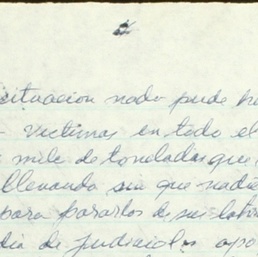 situacion nada puede
victimas en todo el
mile de toneladas que
llevando sin que nadie
para pararlos de sus
dia de judiciales apo